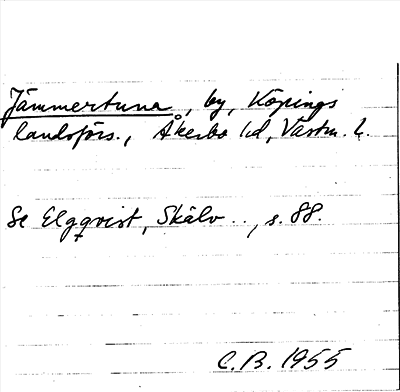 Jämmertuna, by, Köpings
landsförs., Åkerbo hd, Västm. l.
Se Elgqvist, Skälv .., s. 88.
C.B. 1955